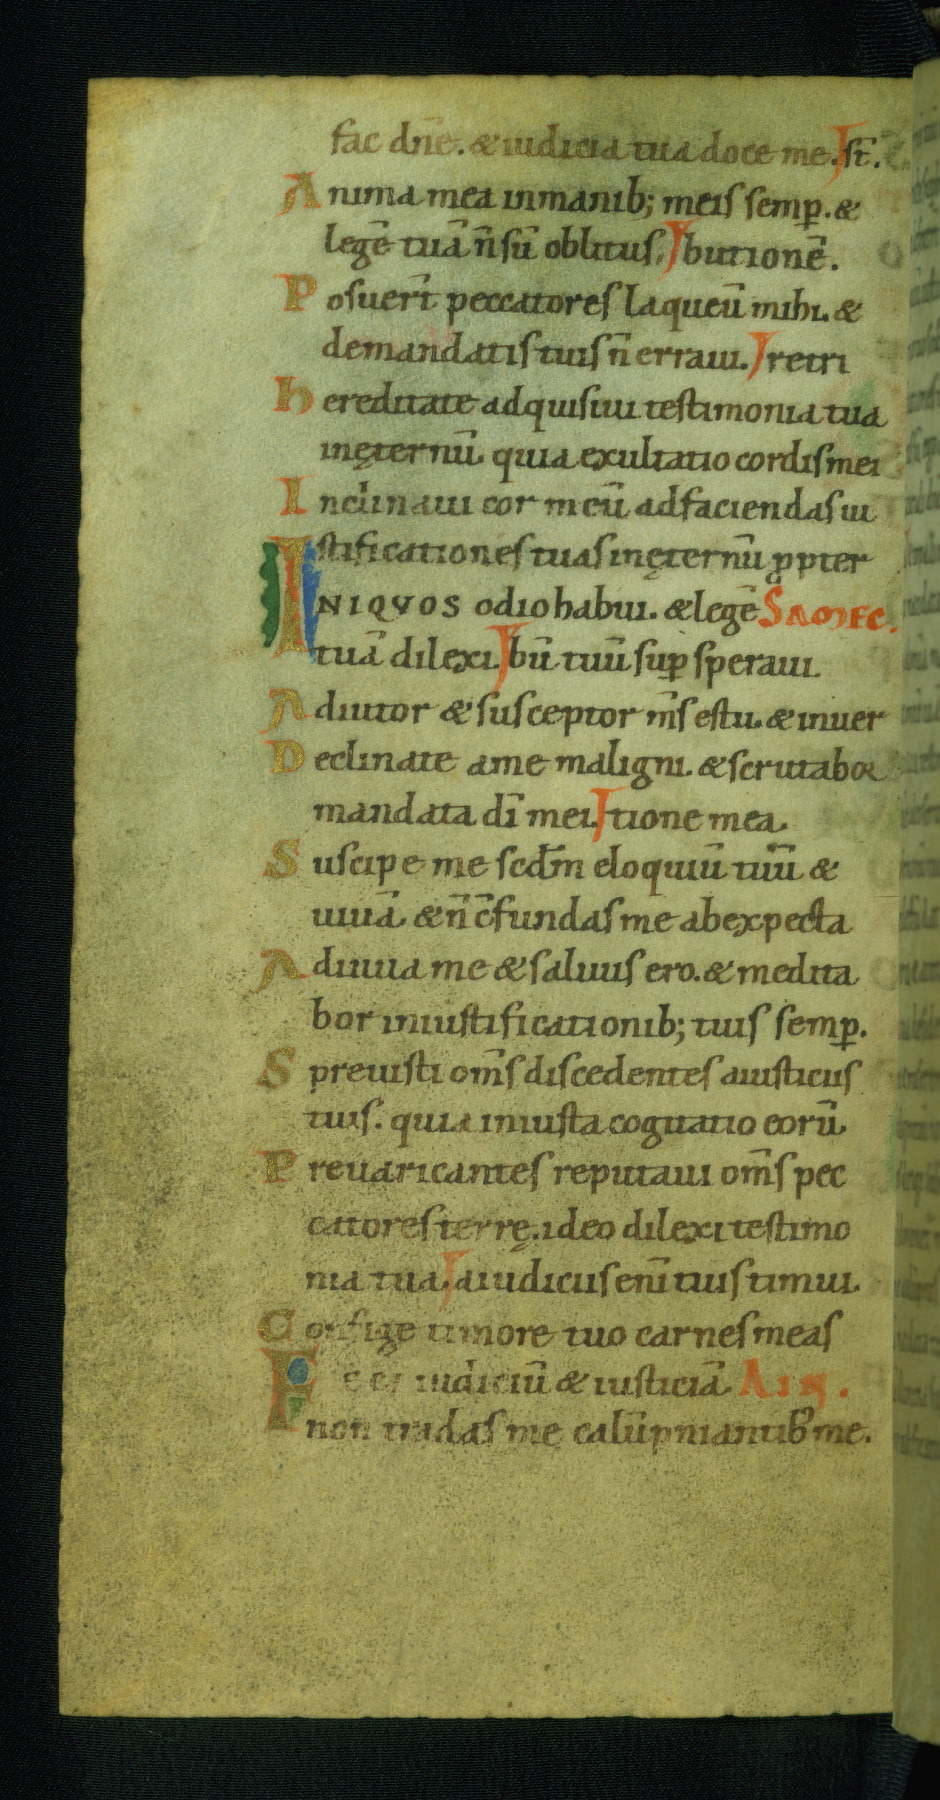 fac dn̄e. & iudicia tua doce me. st̄.
Anima mea in manib; meis semꝑ. &
legē tuā n̄ sū oblitus. butionē.
Posuer̄t peccatores laqueū mihi. &
demandatis tuis n̄ erraui. retri
hereditate adquisiui testimonia tua
inęternū. quia exultatio cordis mei
Inclinaui cor meū ad faciendas iu
stificationes tuas inęternū ꝓpter
INIQVOS odio habui. & legē SAMEC.
tuā dilexi. bū tuū suꝑ speraui.
Adiutor & susceptor m̄s es tu. & inuer
Declinate a me maligni. & scrutabor
mandata dī mei. tione mea.
Suscipe me scd̄m eloquiū tuū &
uiuā. & n̄ c̄fundas me ab expecta
Adiuua me & saluus ero. & medita
bor in iustificationib; tuis semꝑ.
Spreuisti om̄s discedentes a iusticus
tuis. quia iniusta cogitatio eorū.
Preuaricantes reputaui om̄s pec
catores terrę. ideo dilexi testimo
nia tua. a iudicus enī tuis timui.
Confige timore tuo carnes meas
Feci iudiciū & iusticiā. AIN.
non tradas me calūpniantib' me.